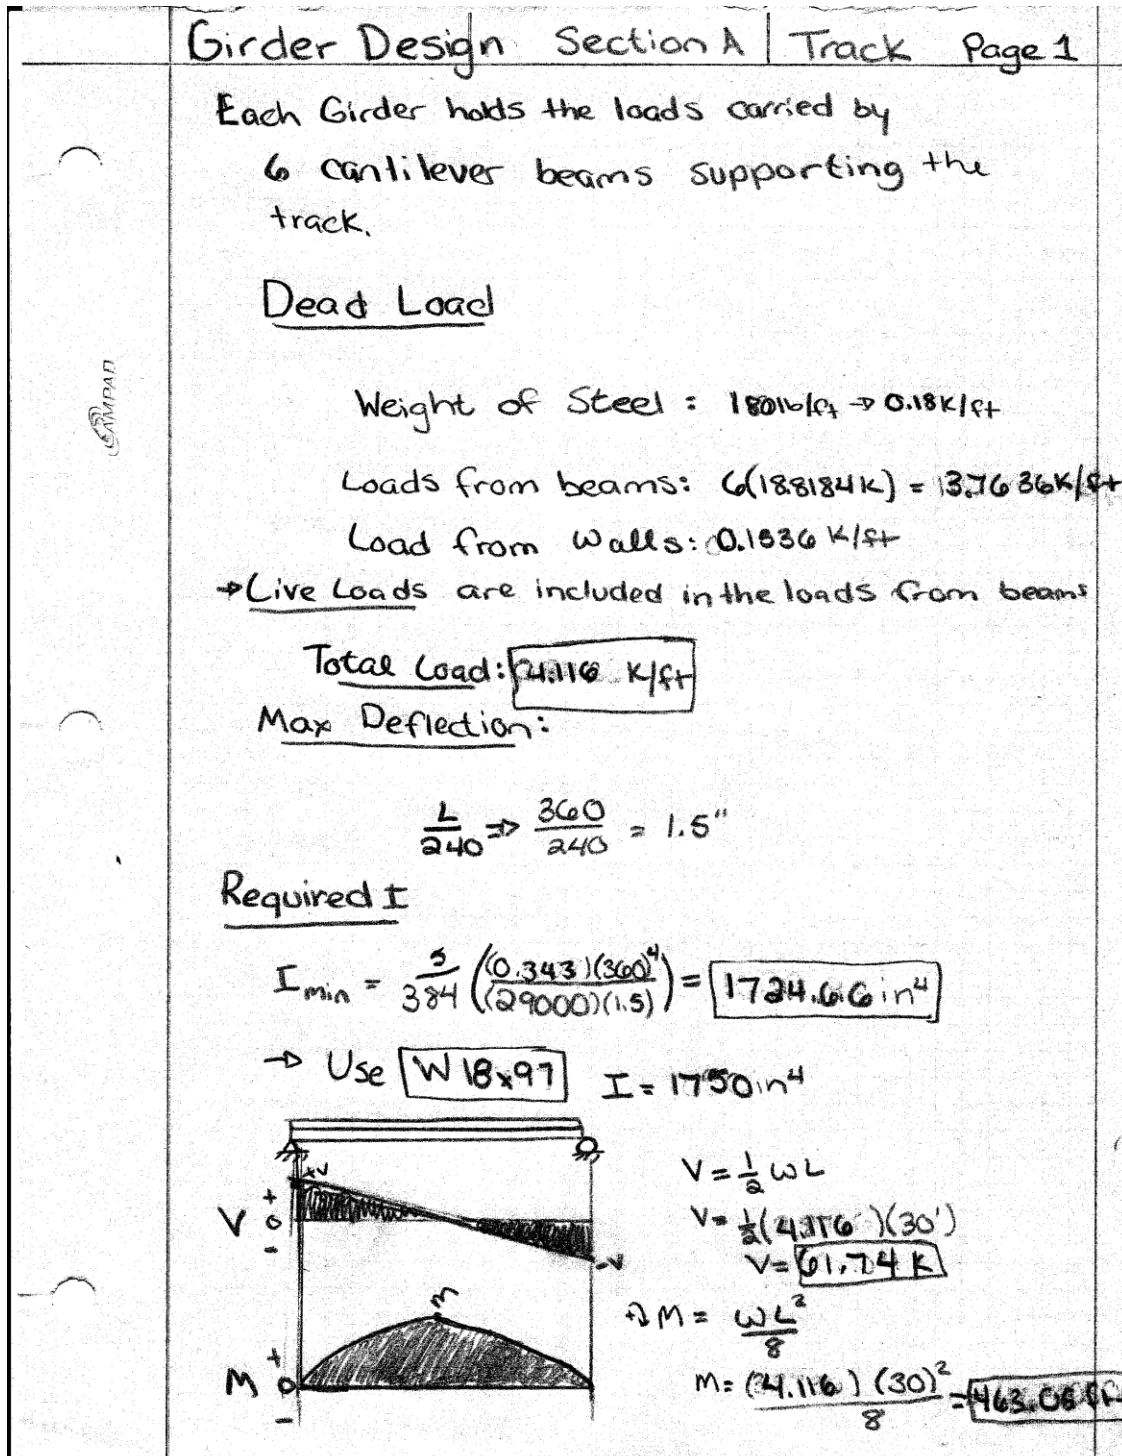 Girder Design Section A | Track Page 1
Each Girder holds the loads carried by
6 cantilever beams supporting the
track.
Dead Load
AMPAD
Weight of Steel : 180lb/ft → 0.18K/ft
Loads from beams: 6(18.8184K) = 3.7636K/ft
Load from Walls: 0.1536 K/ft
→ Live Loads are included in the loads from beams
Total Load: 4.116 K/ft
Max Deflection:
L/240 ⇒ 360/240 = 1.5"
Required I
I min = 5/384 ((0.343)(360)^4/(29000)(1.5)) = 1724.66 in⁴
→ Use W 18x97 I = 1750in⁴
+V
V + 0 -
-V
V = 1/2 ωL
V = 1/2(4.116)(30')
V = 61.74 K
M
M + 0 -
M = ωL²/8
M = (4.116)(30)²/8 =